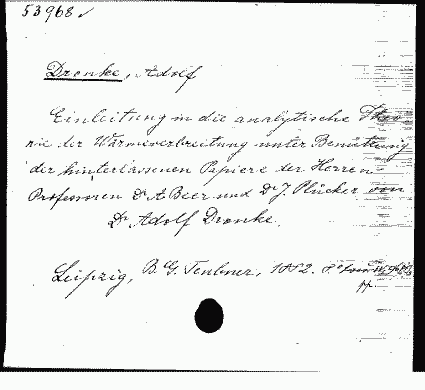 53968
Dronke, Adolf
Einleitung in die analytische Theo
rie der Wärmeverbreitung unter Benützung
der hinterlassenen Papiere der Herren
Professoren Dr A Beer und Dr J. Plücker von
Dr Adolf Dronke.
Leipzig, B. G. Teubner, 1882. 8º
pp